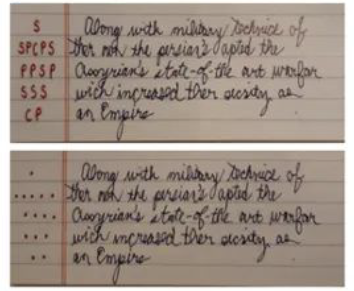 S Along with military technice of
SPCPS ther non the persian's apted the
PPSP Assyrian's state-of-the art warfar
SSS wich increased ther sicsity as
CP an Empire
Along with military technice of
ther non the persian's apted the
Assyrian's state-of-the art warfar
wich increased ther sicsity as
an Empire